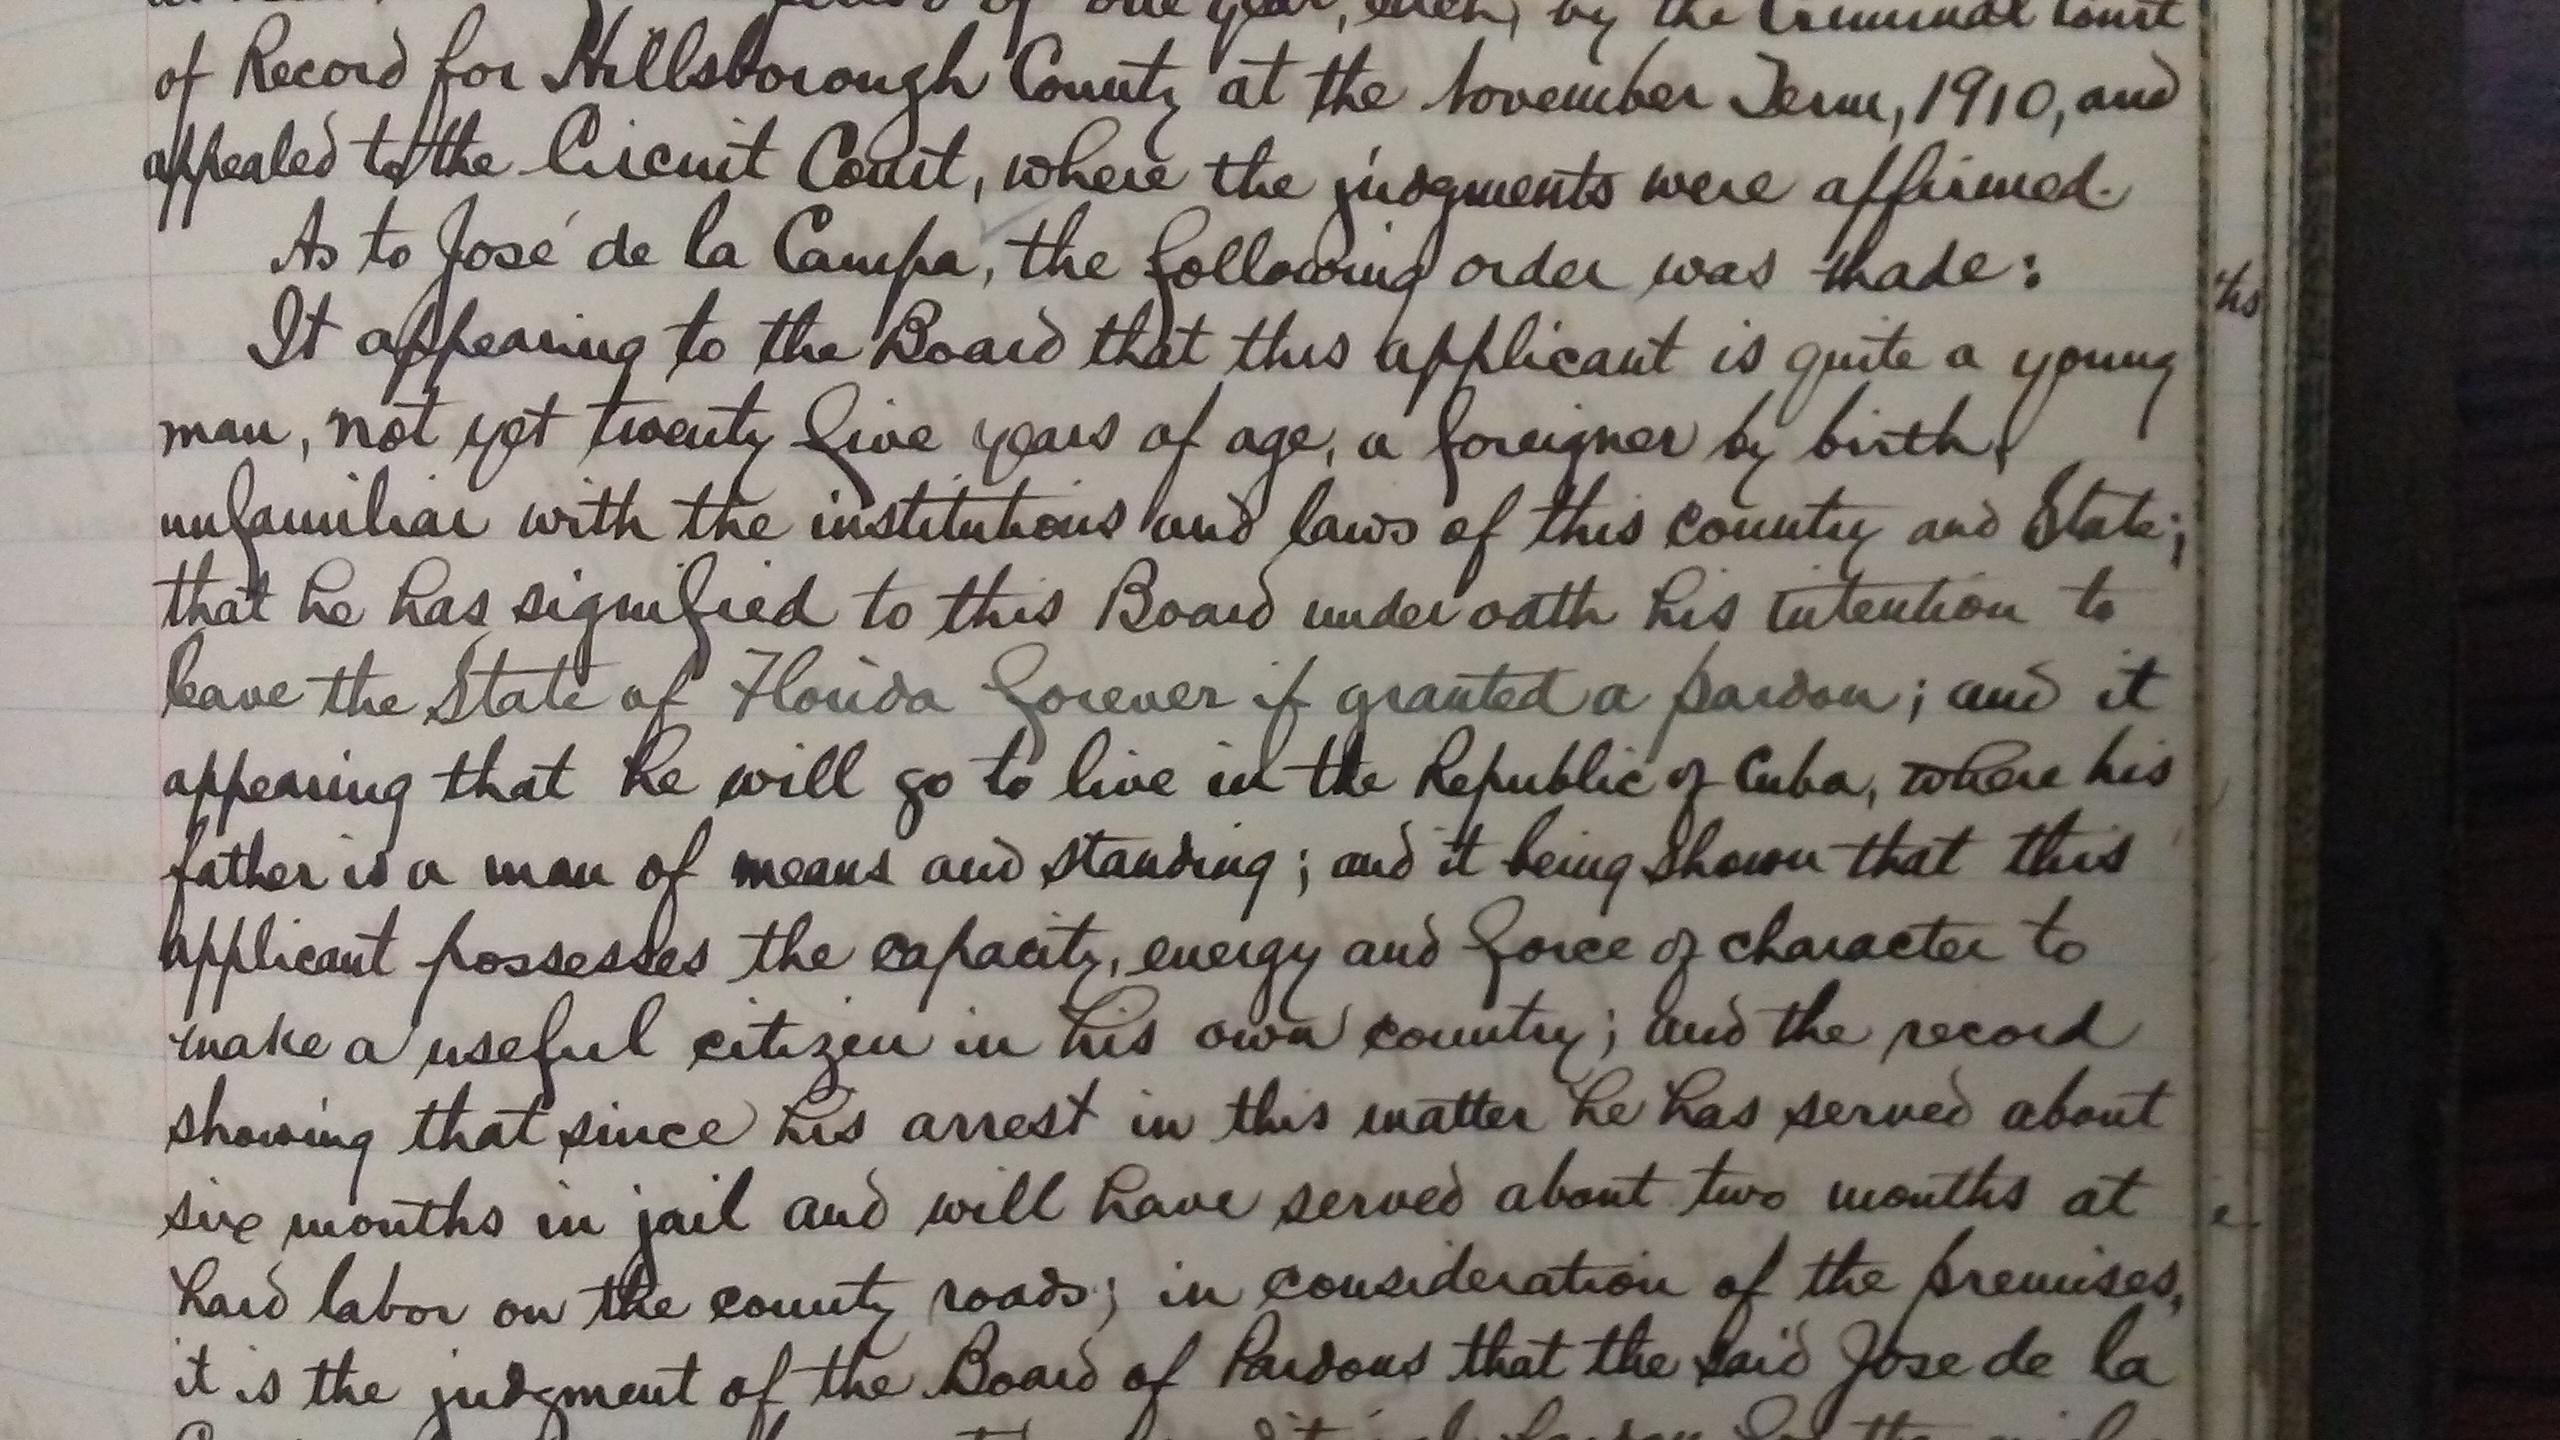 one year, each, by the Criminal Court
of Record for Hillsborough County at the November Term, 1910, and
appealed to the Circuit Court, where the judgments were affirmed.
As to José de la Campa, the following order was made:
It appearing to the Board that this applicant is quite a young
man, not yet twenty five years of age, a foreigner by birth,
unfamiliar with the institutions and laws of this country and State;
that he has signified to this Board under oath his intention to
leave the State of Florida forever if granted a pardon; and it
appearing that he will go to live in the Republic of Cuba, where his
father is a man of means and standing; and it being shown that this
applicant possesses the capacity, energy and force of character to
make a useful citizen in his own country; and the record
showing that since his arrest in this matter he has served about
six months in jail and will have served about two months at
hard labor on the county roads; in consideration of the premises,
it is the judgment of the Board of Pardons that the said Jose de la